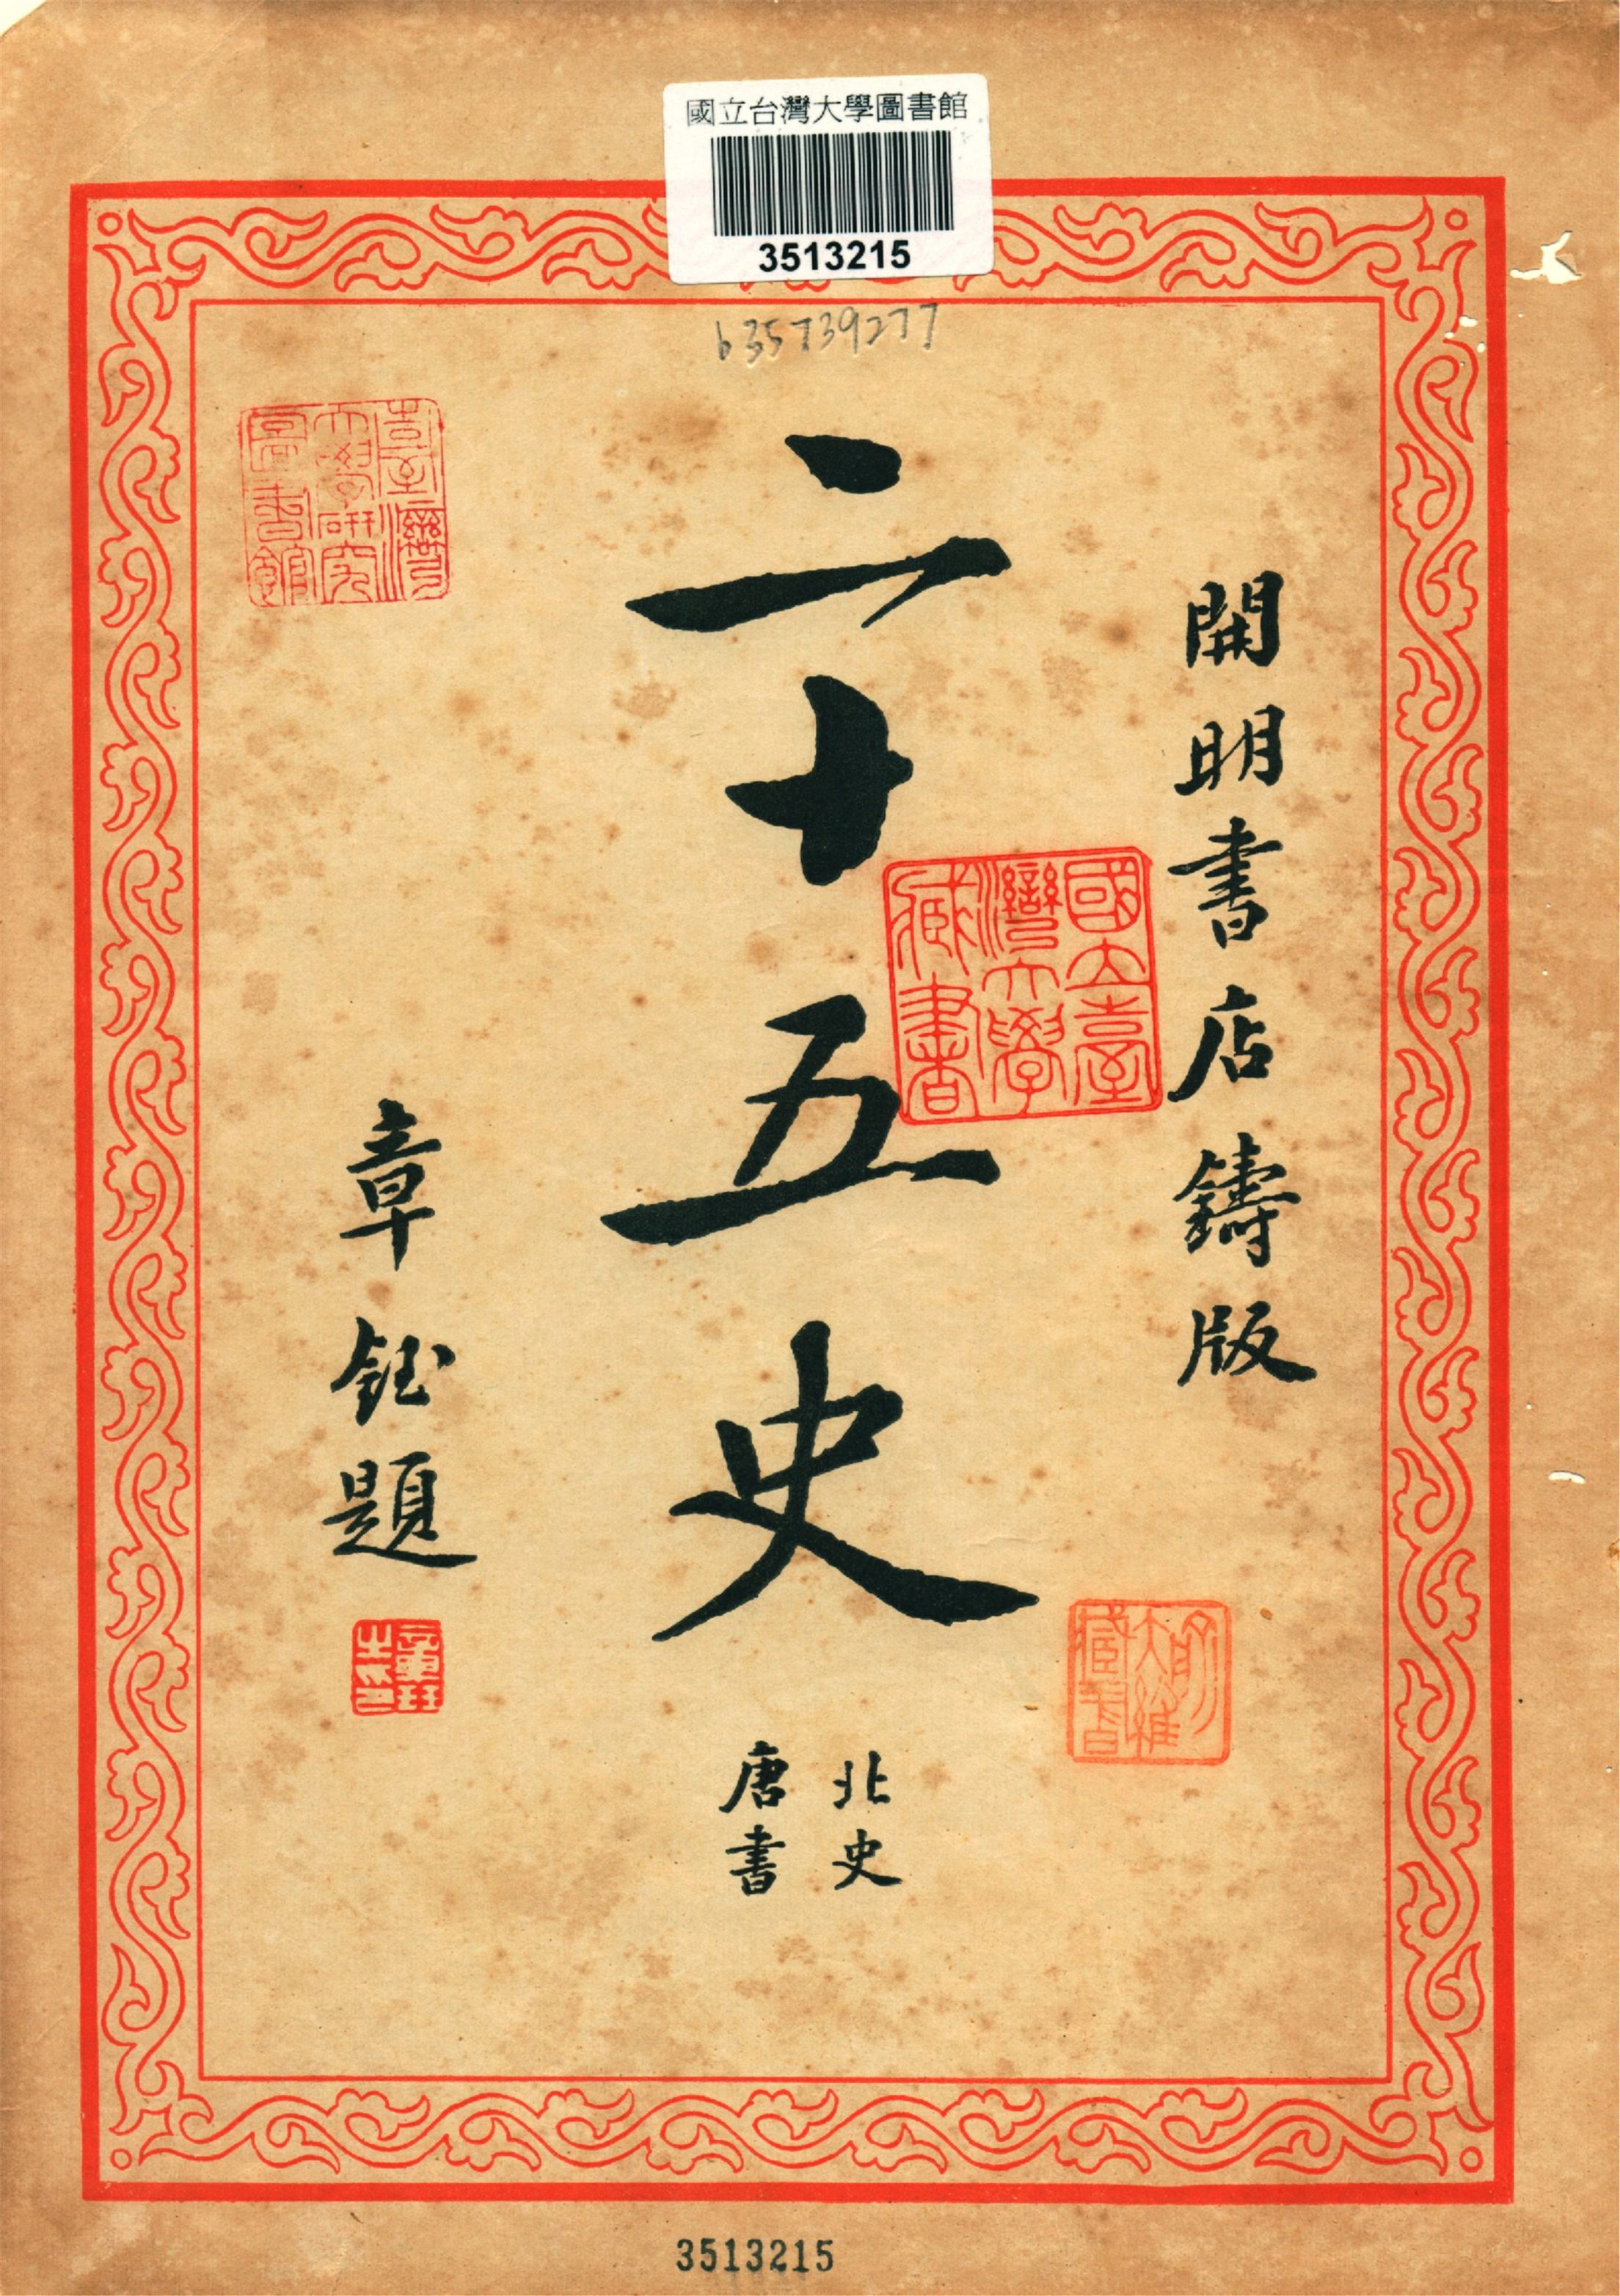 國立台灣大學圖書館
3513215
b35739277
開明書店鑄版
二十五史
北史
唐書
章鈺題
臺灣
大學研究
圖書館
國立臺
灣大學
藏書
大維
藏書
3513215